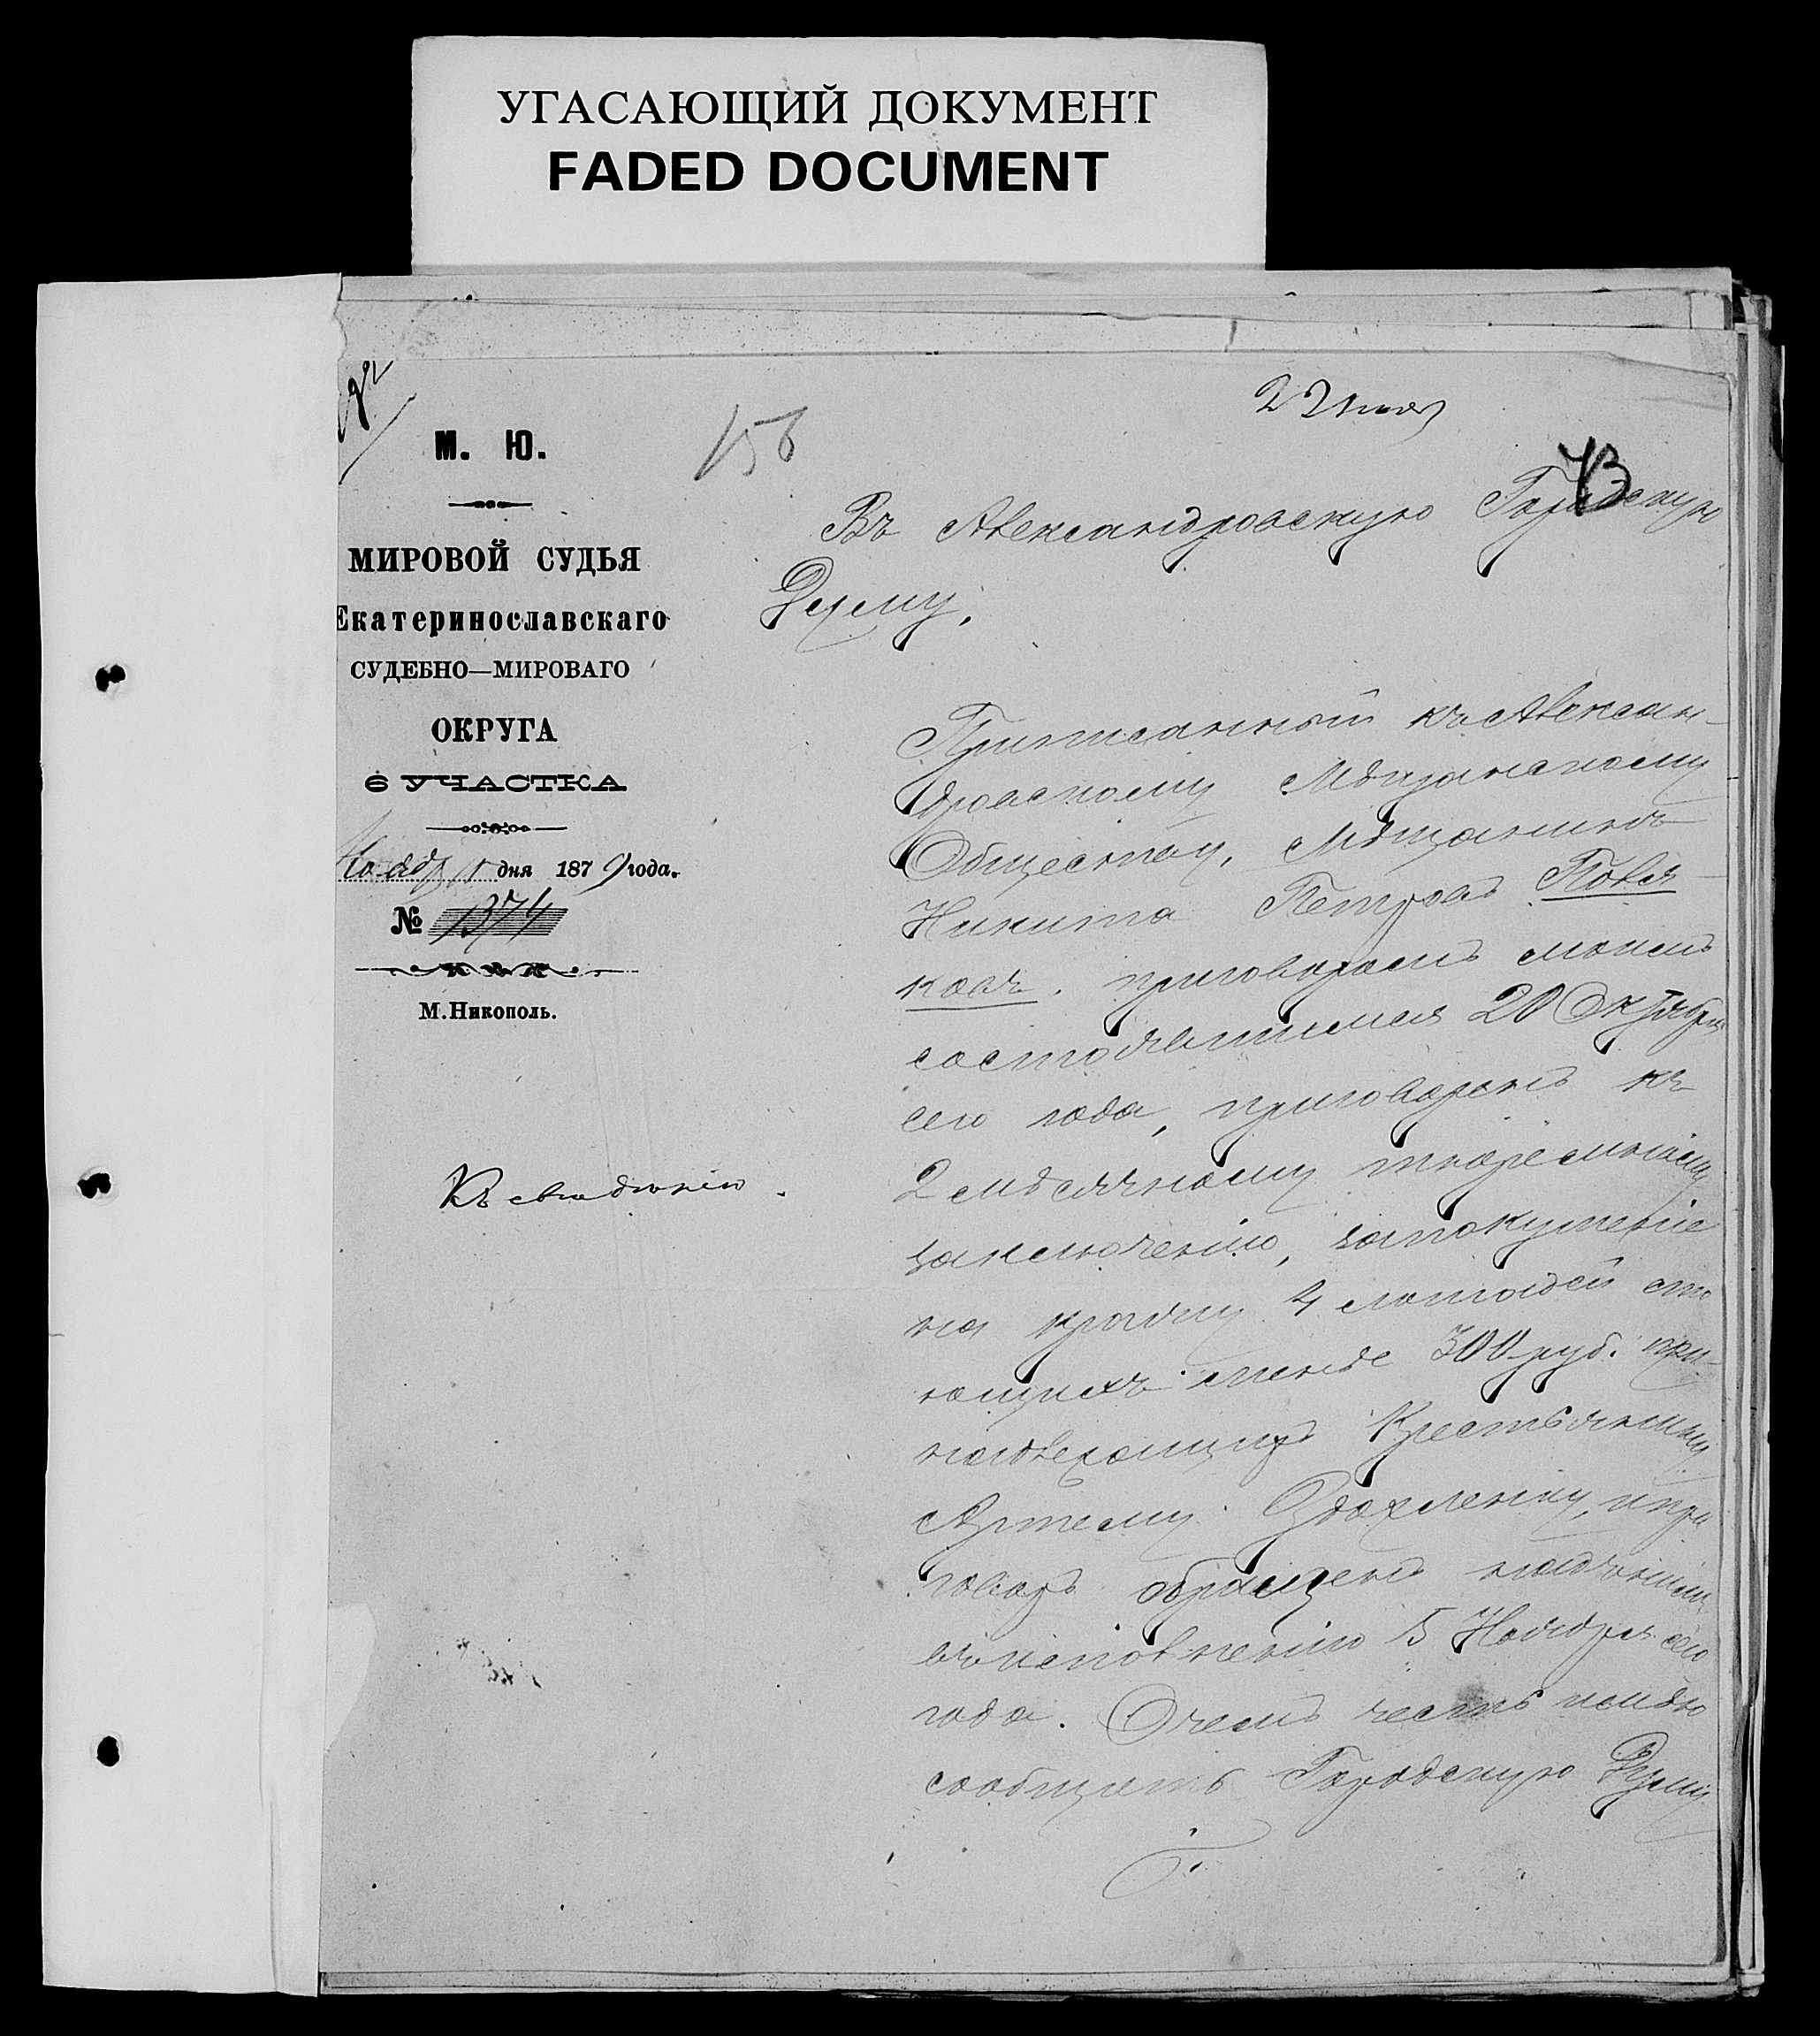 УГАСАЮЩИЙ ДОКУМЕНТ
FADED DOCUMENT
156
73
М. Ю.
МИРОВОЙ СУДЬЯ
Екатеринославскаго
СУДЕБНО—МИРОВАГО
ОКРУГА
6 УЧАСТКА
дня 1879 года.
№ 1374
М. Никополь.
Къ сведению.
Въ Александровскую Городскую
Думу.
Приписанный къ Алексан-
дровскому Мѣщанскому
Обществу, Мѣщанинъ
Никита Петровъ Повѣ-
ковъ, приговоромъ моимъ
состоявшимся 20 Октября
сего года, приговоренъ къ
2 мѣсячному тюремному
заключенію, за покушеніе
на кражу 4 лошадей сто
ющихъ менѣе 300 руб. при-
надлежащихъ Крестьянину
Артему и при
говоръ обращенъ
въ исполненію 5 Ноября сего
года. О чемъ честь имѣю
сообщить Городскую Думу